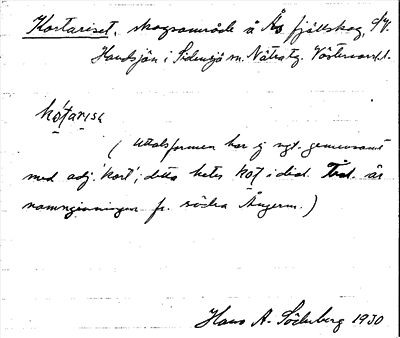 Kortariset, skogsområde å Ås fjällskog, SV.
Handsjön i Sidensjö sn. Nätratg. Västernorrl.
kotarisɩ
(Uttalsformen har ej ngt. gemensamt
med adj. "kort"; detta heter kot i dial. Trol. är
namngivningen fr. södra Ångerm.)
Hans A. Söderberg 1930